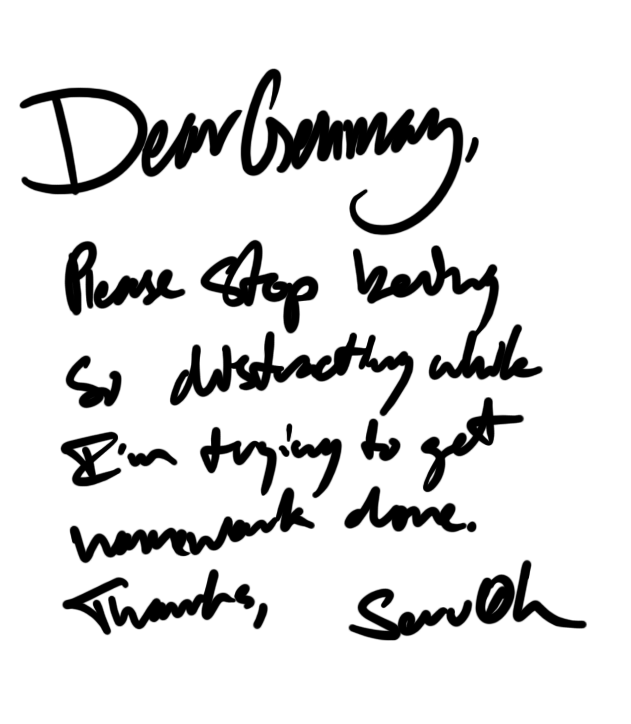 Dear Genmay,
Please stop being
so distracting while
I'm trying to get
homework done.
Thanks, ServOh